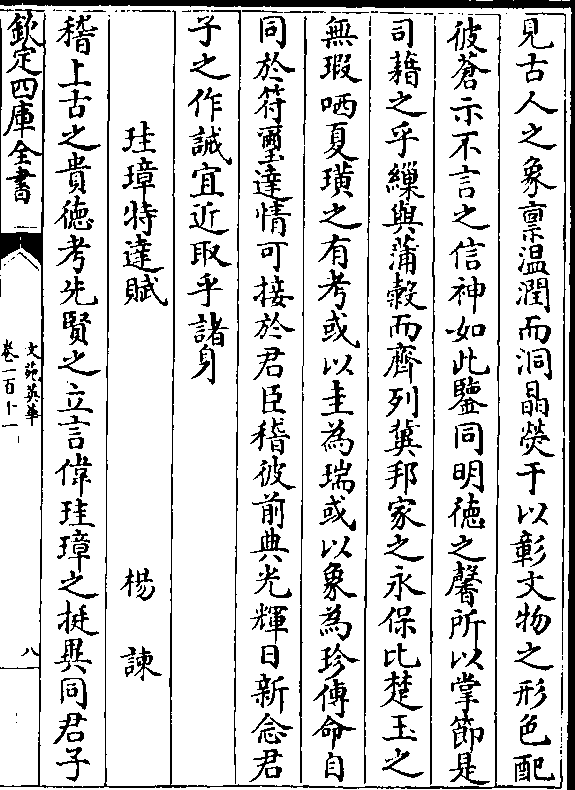 見古人之象稟温潤而洞晶熒于以彰文物之形色配
彼蒼示不言之信神如此鑒同明徳之馨所以掌節是
司藉之乎繅與蒲榖而齊列冀邦家之永保比楚玉之
無瑕哂夏璜之有考或以圭為瑞或以象為珍傅命自
同於符璽達情可接於君臣稽彼前典光輝日新念君
子之作誠宜近取乎諸身
珪璋特達賦 楊諫
稽上古之貴徳考先賢之立言偉珪璋之挺異同君子
欽定四庫全書
文苑英華
卷一百十一
八